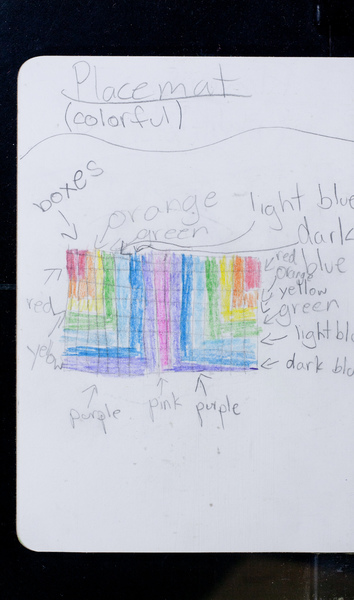 Placemat
(colorful)
boxes
orange
light blue
green
dark
blue
red
orange
yellow
red
green
yellow
light bl
dark blu
purple
pink
purple